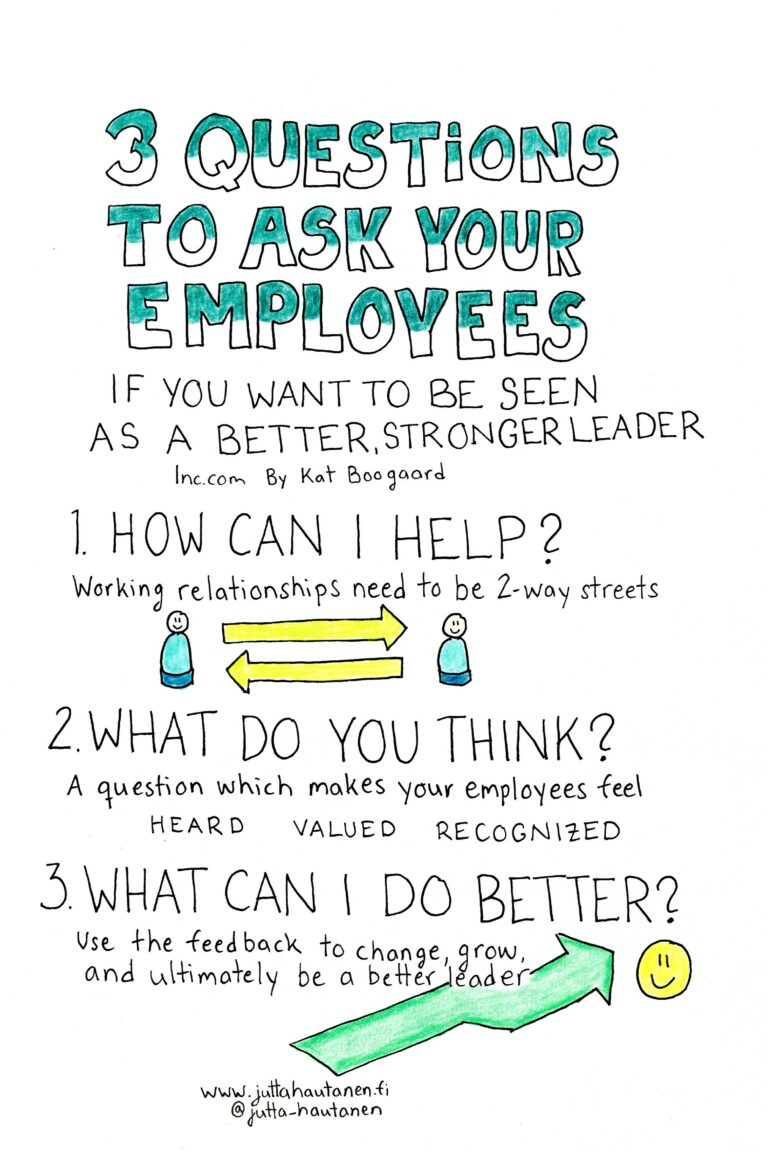 3 QUESTIONS
TO ASK YOUR
EMPLOYEES
IF YOU WANT TO BE SEEN
AS A BETTER, STRONGER LEADER
Inc.com By Kat Boogaard
1. HOW CAN I HELP?
Working relationships need to be 2-way streets
2. WHAT DO YOU THINK?
A question which makes your employees feel
HEARD VALUED RECOGNIZED
3. WHAT CAN I DO BETTER?
Use the feedback to change, grow,
and ultimately be a better leader
www.juttahautanen.fi
@jutta-hautanen